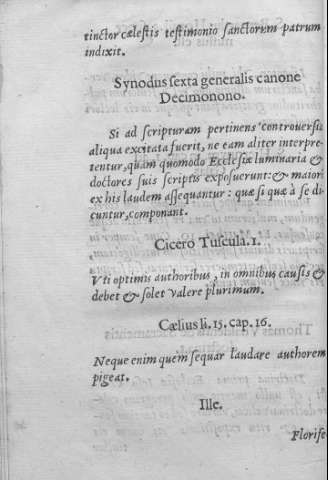 tinctor cælestis testimonio sanctorum patrum
indixit.
Synodus sexta generalis canone
Decimonono.
Si ad scripturam pertinens controuersia
aliqua excitata fuerit, ne eam aliter interpre-
tentur, quam quomodo Ecclesiæ luminaria &
doctores suis scriptis exposuerunt: & maiorē
ex his laudem assequantur: quæ si quæ à se di-
cuntur, componant.
Cicero Tuscula. 1.
Vti optimis authoribus, in omnibus causis &
debet & solet valere plurimum.
Cælius li. 15. cap. 16.
Neque enim quem sequar laudare authorem
pigeat.
Ille.
Florise